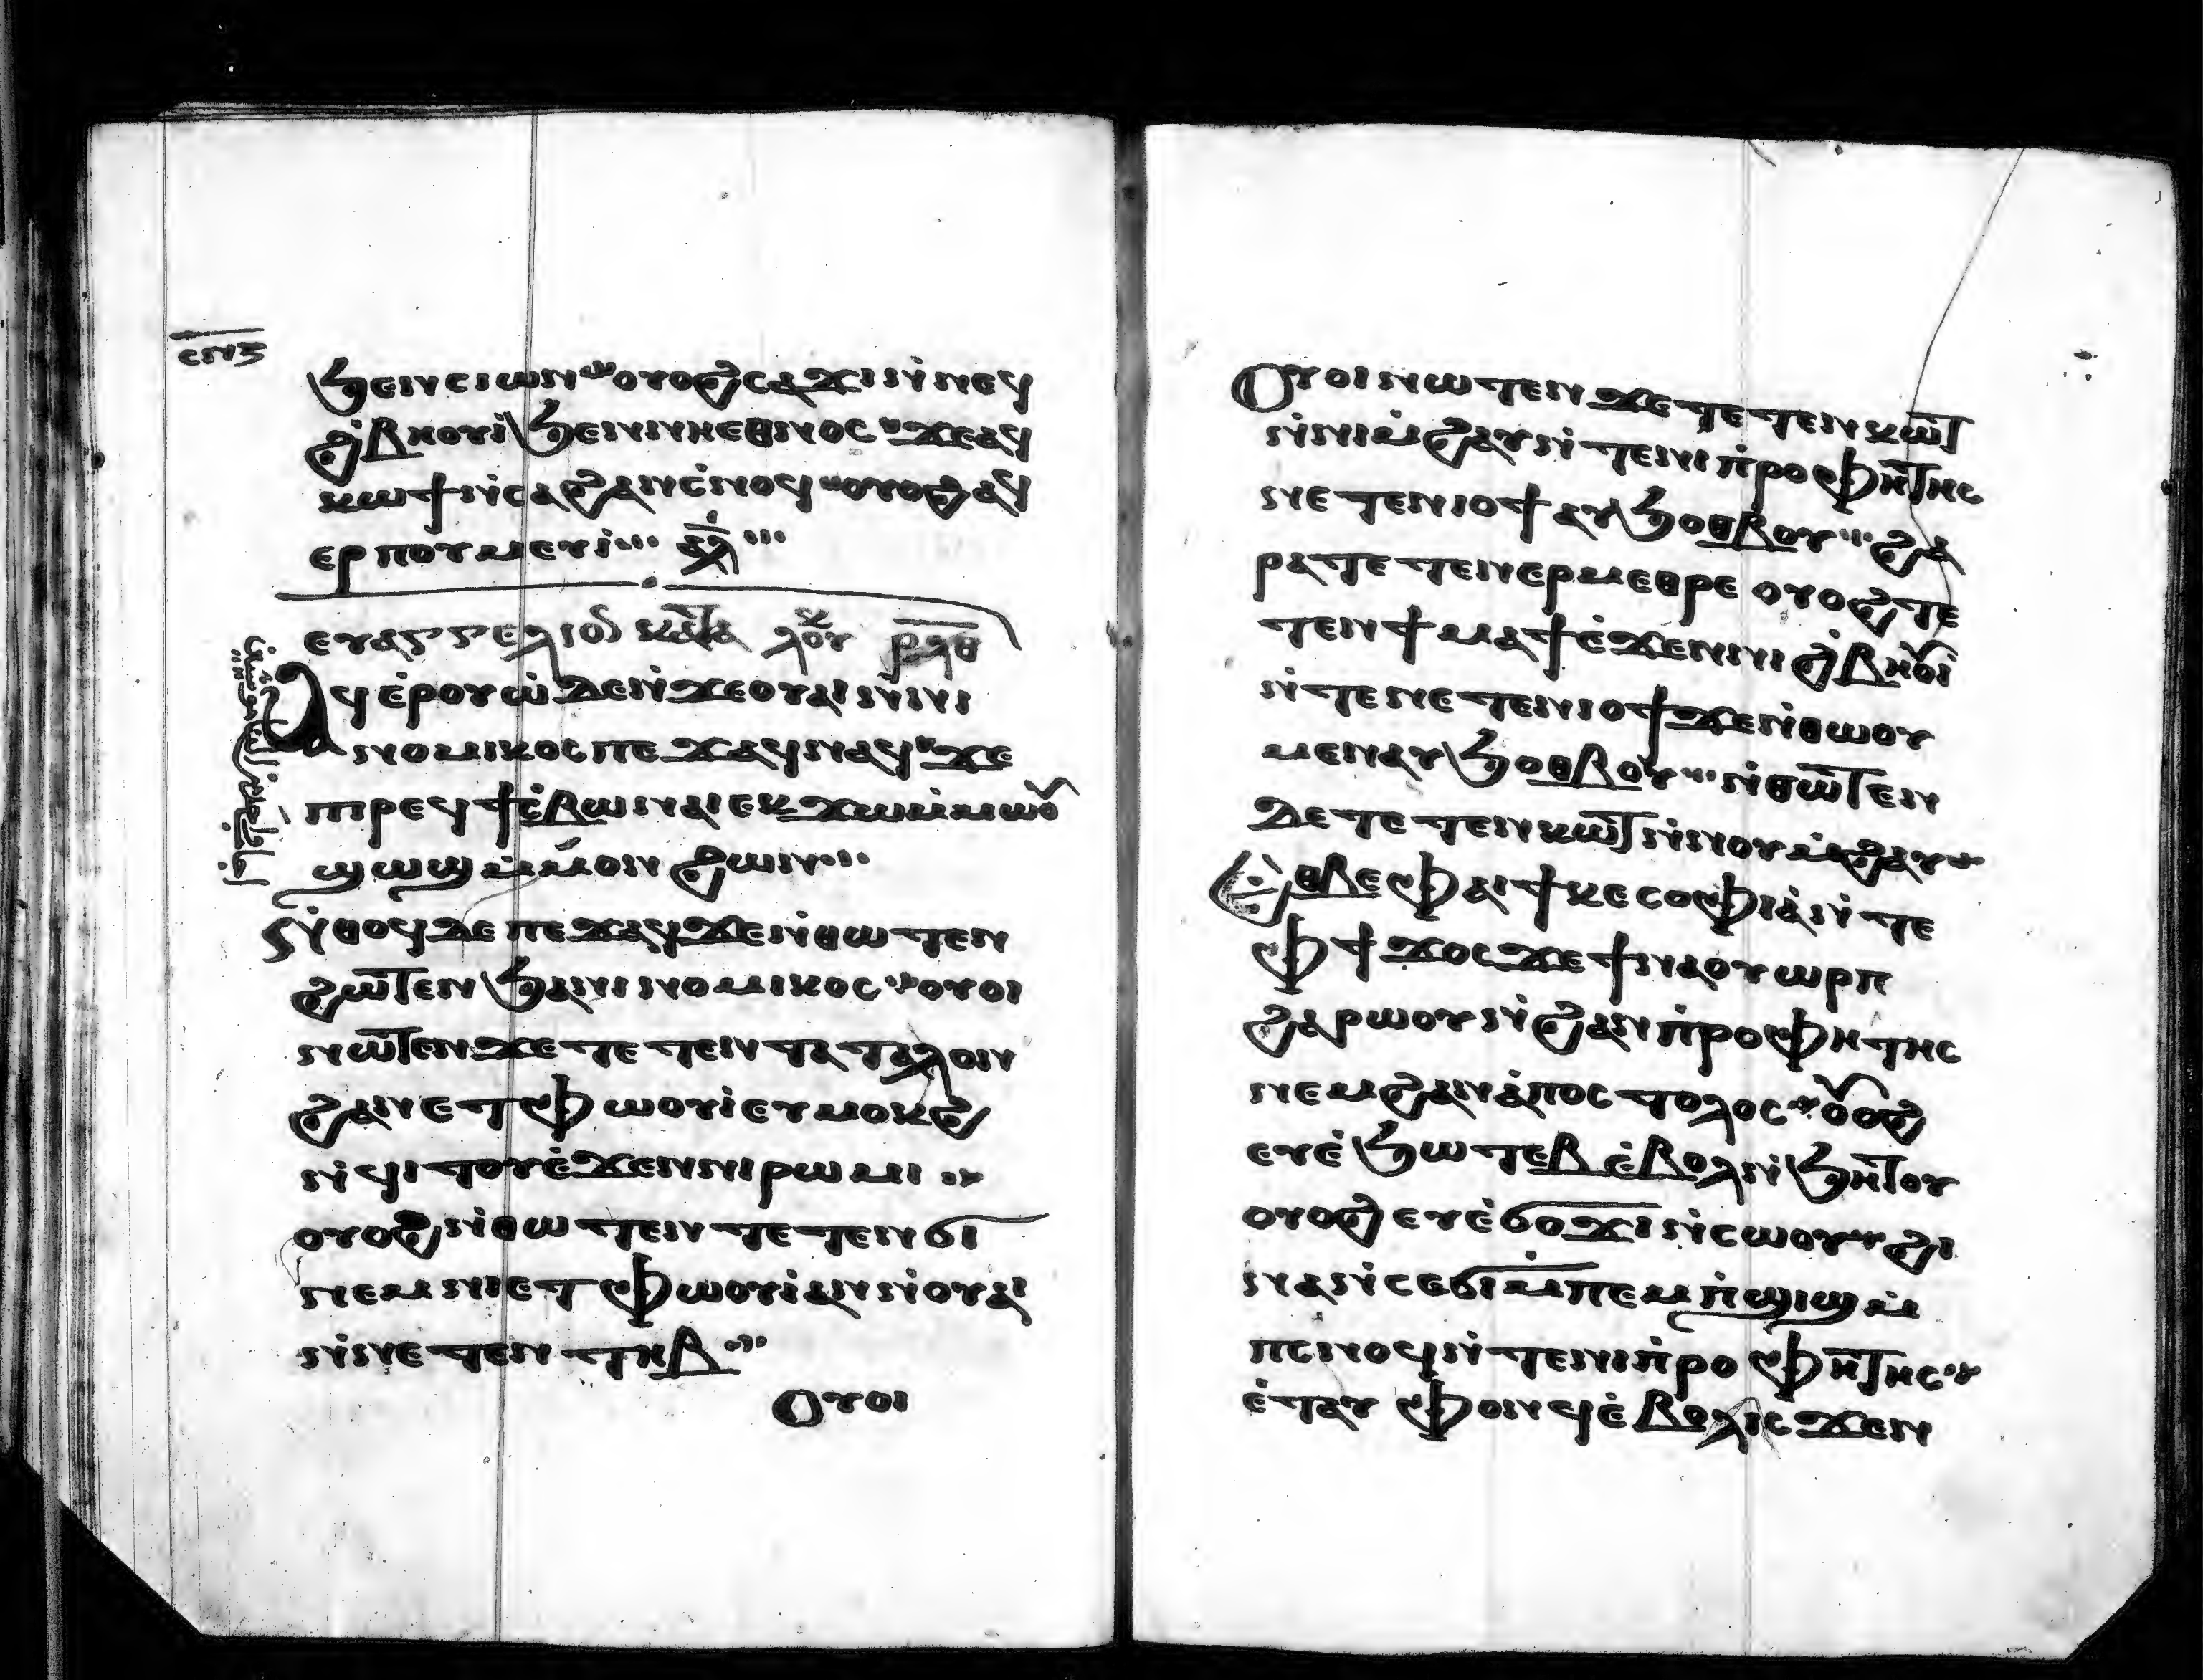 ⲥⲛⲍ
ϧⲉⲛⲥⲓⲱⲛ ⲟⲩⲟϩ ⲥⲁϫⲓ ⲛ̀ⲛⲉϥ
ϩ̀ⲃⲏⲟⲩⲓ̀ ϧⲉⲛⲛⲓⲉⲑⲛⲟⲥ ϫⲉⲁϥ
ⲕⲱϯ ⲛ̀ⲥⲁϩⲁⲛⲥ̀ⲛⲟϥ ⲟⲩⲟϩ ⲁϥ
ⲉⲣⲡⲟⲩⲙⲉⲩⲓ̀ ⲁ̅ⲗ̅
ⲉⲩⲁⲅⲅⲉⲗⲓⲟⲛ ⲕⲁⲧⲁ ⲗⲟⲩⲕ ⲣⲗⲑ
Ⲁϥⲉ̀ⲣⲟⲩⲱ̀ ⲇⲉ ⲛ̀ϫⲉⲟⲩⲁⲓ ⲛ̀ⲛⲓ
ⲛⲟⲙⲓⲕⲟⲥ ⲡⲉϫⲁϥ ⲛⲁϥ ϫⲉ
ⲡⲓⲣⲉϥϯⲥ̀ⲃⲱ ⲛⲁⲓ ⲉⲕϫⲱ ⲙ̀ⲙⲱⲟⲩ
ϣⲱϣ ⲙ̀ⲙⲟⲛ ϩⲱⲛ
ⲛ̀ⲑⲟϥ ⲇⲉ ⲡⲉϫⲁϥ ϫⲉⲛ̀ⲑⲱⲧⲉⲛ
ϩⲱⲧⲉⲛ ϧⲁⲛⲓⲛⲟⲙⲓⲕⲟⲥ ⲟⲩⲟⲓ
ⲛⲱⲧⲉⲛ ϫⲉⲧⲉⲧⲉⲛⲧⲁⲧⲁⲗⲟⲛ
ϩⲁⲛⲉⲧⲫⲱⲟⲩⲓ̀ ⲉⲩⲙⲟⲕϩ
ⲛ̀ϥⲓⲧⲟⲩ ⲉ̀ϫⲉⲛⲛⲓⲣⲱⲙⲓ
ⲟⲩⲟϩ ⲛ̀ⲑⲱⲧⲉⲛ ⲧⲉⲧⲉⲛϭⲓ
ⲛⲉⲙⲛⲓⲉⲧⲫⲱⲟⲩⲓ̀ ⲁⲛ ⲛ̀ⲟⲩⲁⲓ
ⲛ̀ⲛⲉⲧⲉⲛⲧⲏⲃ
Ⲟⲩⲟⲓ
Ⲟⲩⲟⲓ ⲛⲱⲧⲉⲛ ϫⲉⲧⲉⲧⲉⲛⲕⲱⲧ
ⲛ̀ⲛⲓⲙ̀ϩⲁⲩ ⲛ̀ⲧⲉⲛⲓⲡ̀ⲣⲟⲫⲏⲧⲏⲥ
ⲛⲉⲧⲉⲛⲓⲟϯ ⲁⲩϧⲟⲑⲃⲟⲩ ϩⲁ
ⲣⲁ ⲧⲉⲧⲉⲛⲉⲣⲙⲉⲑⲣⲉ ⲟⲩⲟϩ ⲧⲉ
ⲧⲉⲛϯⲙⲁϯ ⲉ̀ϫⲉⲛⲛⲓϩ̀ⲃⲏⲟⲩⲓ̀
ⲛ̀ⲧⲉⲛⲉⲧⲉⲛⲓⲟϯ ϫⲉⲛ̀ⲑⲱⲟⲩ
ⲙⲉⲛ ⲁⲩϧⲟⲑⲃⲟⲩ ⲛ̀ⲑⲱⲧⲉⲛ
ⲇⲉ ⲧⲉⲧⲉⲛⲕⲱⲧ ⲛ̀ⲛⲟⲩⲙ̀ϩⲁⲩ
Ⲉⲑⲃⲉⲫⲁⲓ ϯⲕⲉⲥⲟⲫⲓⲁ̀ ⲛ̀ⲧⲉ
ⲫϯ ϫⲟⲥ ϫⲉϯⲛⲁⲟⲩⲱⲣⲡ
ϩⲁⲣⲱⲟⲩ ⲛ̀ϩⲁⲛⲡ̀ⲣⲟⲫⲏⲧⲏⲥ
ⲛⲉⲙϩⲁⲛⲁ̀ⲡⲟⲥⲧⲟⲗⲟⲥ ⲟⲩⲟϩ
ⲉⲩⲉ̀ϧⲱⲧⲉⲃ ⲉ̀ⲃⲟⲗ ⲛ̀ϧⲏⲧⲟⲩ
ⲟⲩⲟϩ ⲉⲩⲉ̀ϭⲟϫⲓ ⲛ̀ⲥⲱⲟⲩ ϩⲓ
ⲛⲁ ⲛ̀ⲥⲉϭⲓⲙ̀ⲡⲉⲙⲡ̀ϣⲓϣ ⲙ̀
ⲡⲥⲛⲟϥ ⲛ̀ⲧⲉⲛⲓⲡ̀ⲣⲟⲫⲏⲧⲏⲥ
ⲉ̀ⲧⲁⲩⲫⲟⲛϥ ⲉ̀ⲃⲟⲗ ⲓⲥϫⲉⲛ